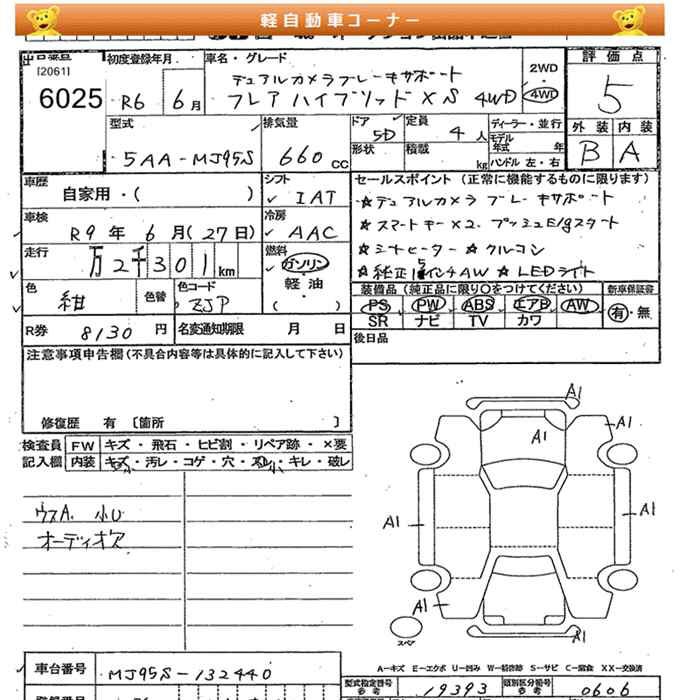 軽自動車コーナー
出品番号 初度登録年月 車名・グレード 評価点
[2061] デュアルカメラブレーキサポート 2WD
6025 R6 6月 フレアハイブリッド XS 4WD 4WD 5
型式 排気量 ドア 定員 ディーラー・並行 外装 内装
5AA-MJ95S 660cc 5D 4人 モデル年式 年 B A
形状 積載 kg ハンドル 左・右
車歴 シフト セールスポイント (正常に機能するものに限ります)
自家用・( ) IAT ☆デュアルカメラブレーキサポート
車検 冷房 ☆スマートキー×2、プッシュE/gスタート
R9年 6月(27日) AAC ☆シートヒーター ☆クルコン
走行 燃料 ☆純正15インチAW ☆LEDライト
万2千301km ガソリン
色 色替 色コード 軽油・ 装備品 (純正品に限り○をつけてください) 新車保証書
紺 ZJP ( ) PS PW ABS エアB AW 有・無
SR ナビ TV カワ
R券 8130円 名変通知期限 月 日 後日品
注意事項申告欄(不具合内容等は具体的に記入して下さい)
修復歴 有 〔箇所 〕
検査員 FW キズ・飛石・ヒビ割・リペア跡・×要
記入欄 内装 キズ・汚レ・コゲ・穴・スレ・キレ・破レ
小
A1
A1
A1
ウスA 小U
オーディオア
A1
A1
A1
スペア
A1
A-キズ E-エクボ U-凹み W-補修跡 S-サビ C-腐食 XX-交換済
車台番号 MJ95S-132440
型式指定番号 参考 19393 類別区分番号 参考 0606